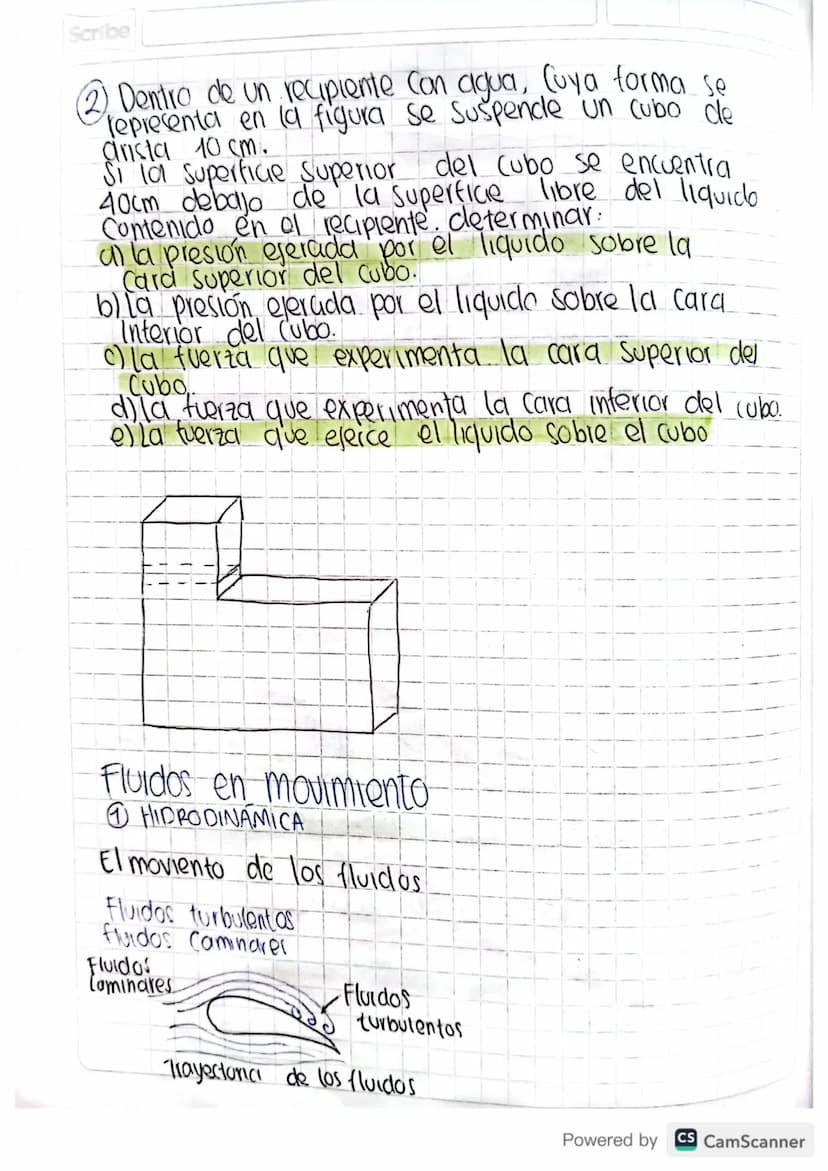 Scribe
② Dentro de un recipiente con agua, cuya forma se
representa en la figura se suspende un cubo de
arista 10 cm.
Si la superficie superior del cubo se encuentra
40cm debajo de la superficie libre del liquido
Contenido en el recipiente. determinar:
a) la presión ejercida por el liquido sobre la
Cara superior del cubo.
b) la presión ejercida por el liquido sobre la cara
Inferior del cubo.
c) la fuerza que experimenta la cara superior del
cubo
d) la fuerza que experimenta la cara inferior del cubo.
e) La fuerza que ejerce el liquido sobre el cubo
Fluidos en movimiento
① HIDRODINÁMICA
El moviento de los fluidos
Fluidos turbulentos
fluidos Caminares
Fluidos
Laminares
Fluidos
turbulentos
Trayectoria de los fluidos
Powered by CS CamScanner